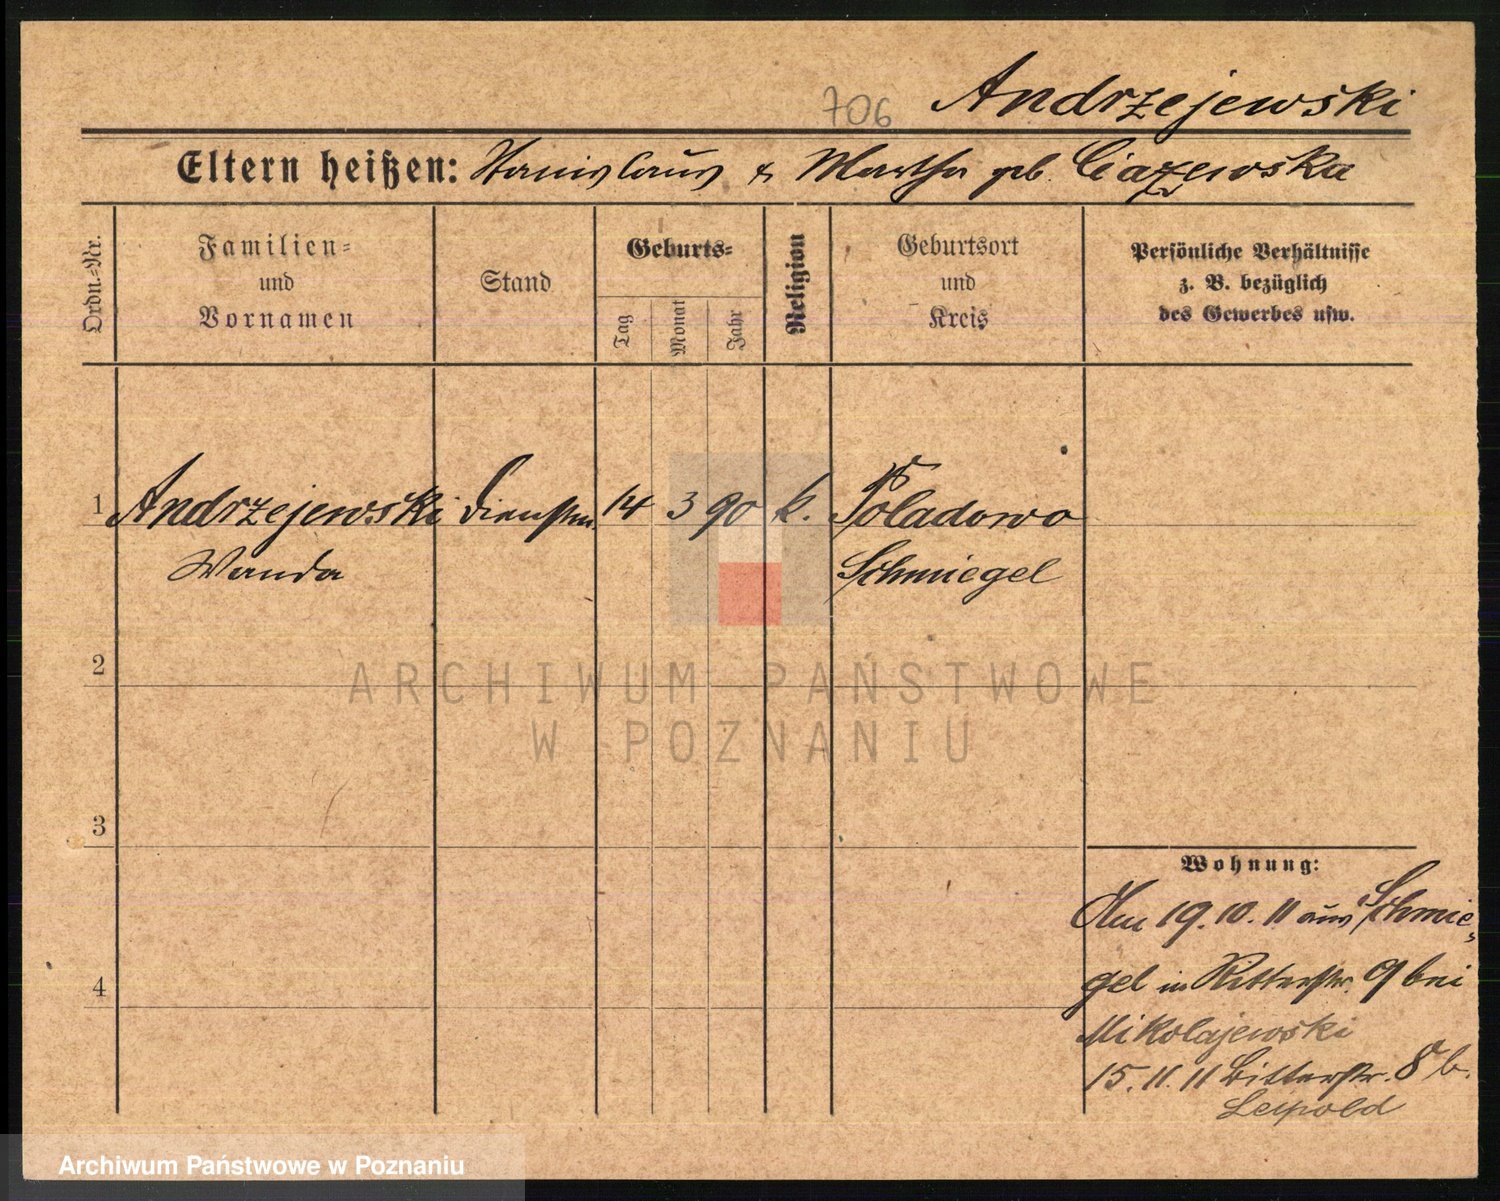 706 Andrzejewski
Eltern heißen: Stanislaus & Martha geb. Ciazewska
Ordn.=Nr.
Familien=
und
Vornamen
Stand
Geburts=
Tag
Monat
Jahr
Religion
Geburtsort
und
Kreis
Persönliche Verhältnisse
z. B. bezüglich
des Gewerbes usw.
1 Andrzejewski Dienstm. 14 3 90 k. Poladowo
Wanda Schmiegel
2
ARCHIWUM PAŃSTWOWE
W POZNANIU
3
Wohnung:
Am 19.10.11 aus Schmie
gel in Ritterstr. 9 bei
4
Mikolajewski
15.11.11 Ritterstr. 8 b.
Leipold
Archiwum Państwowe w Poznaniu